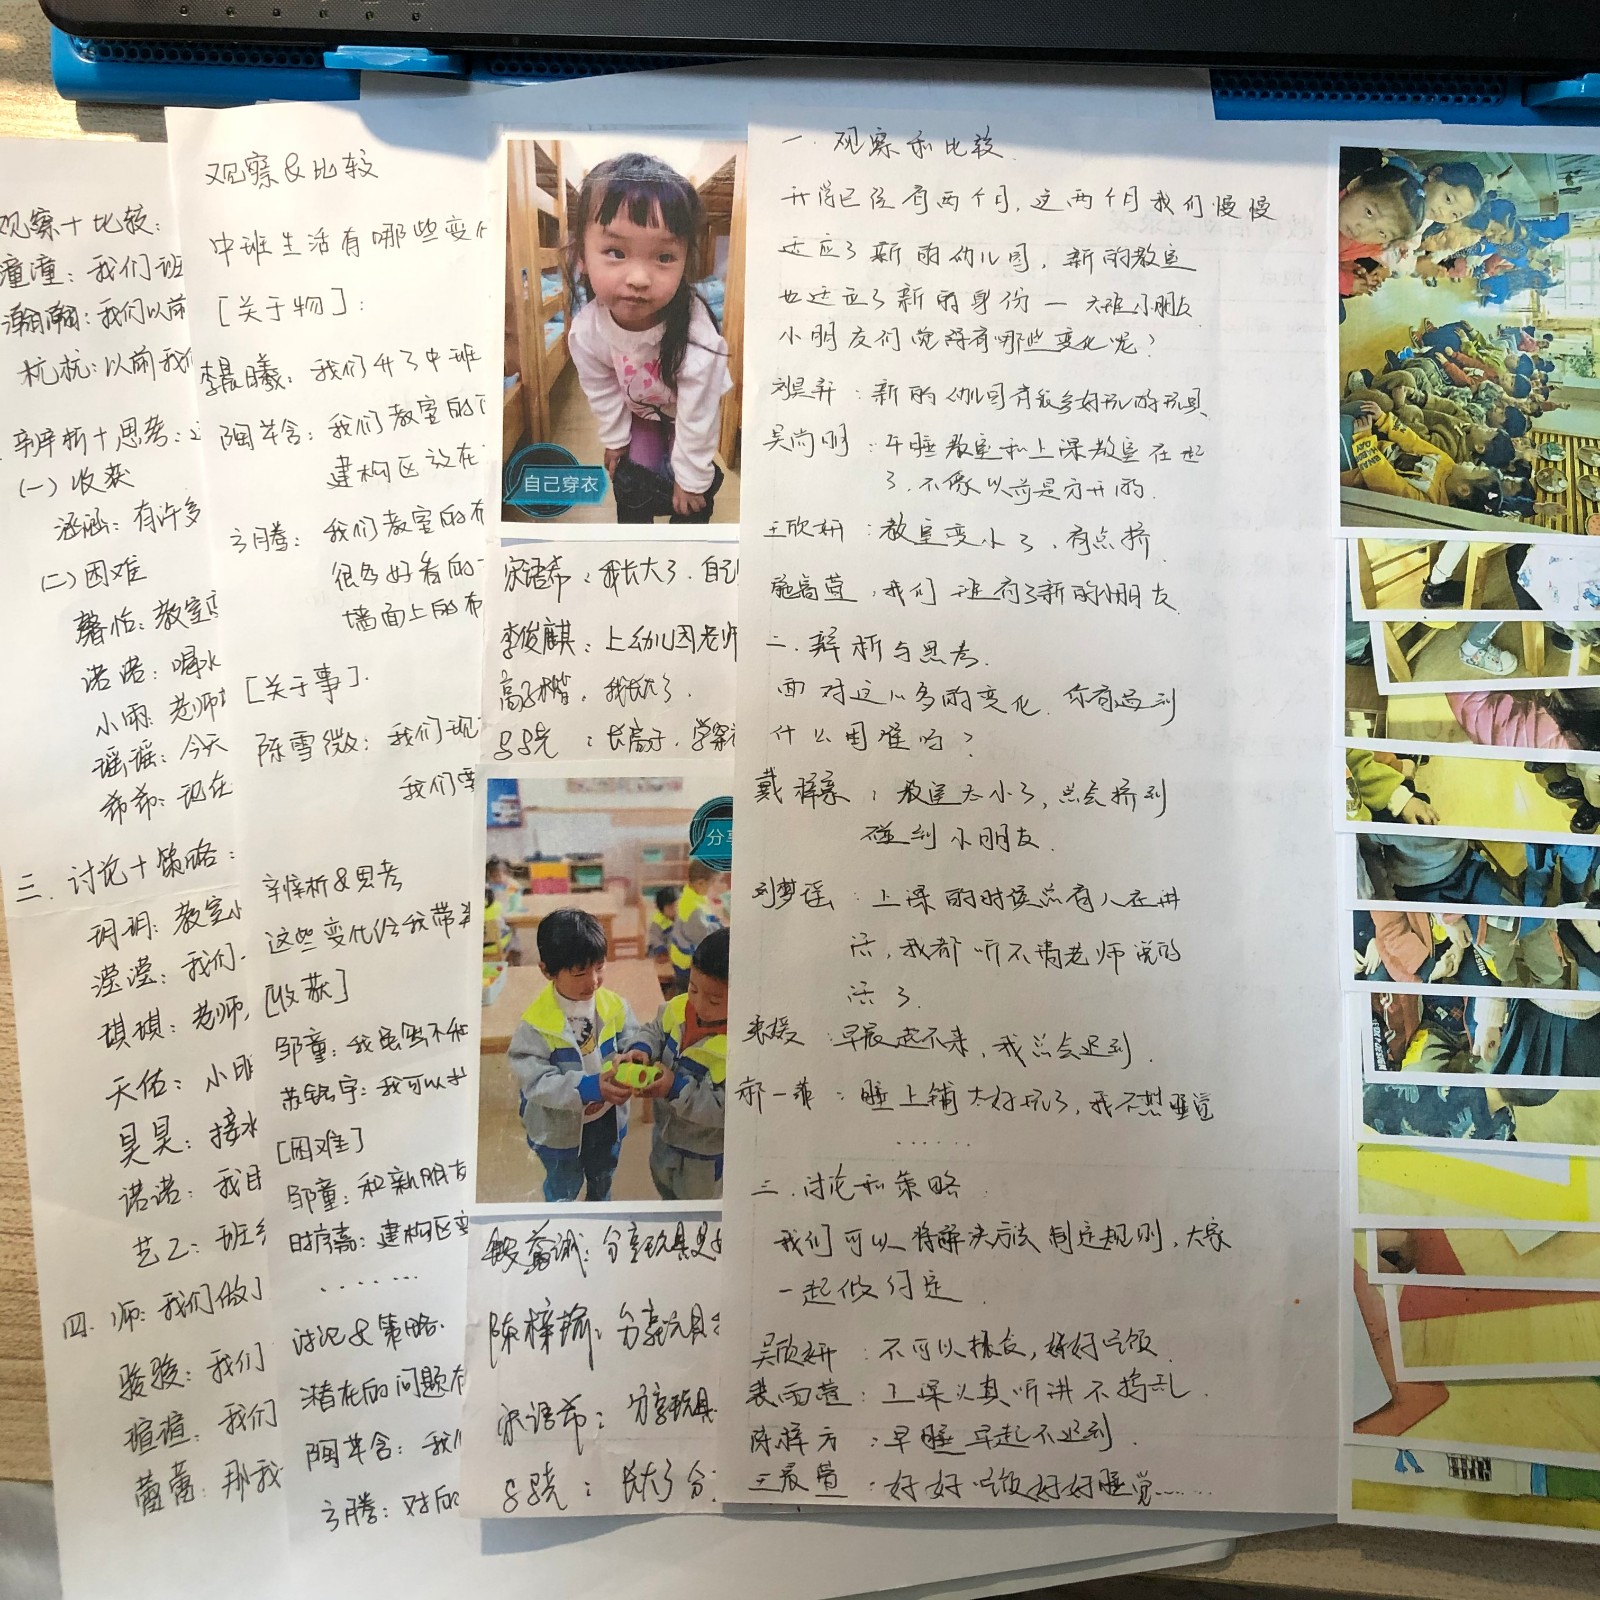 观察十比较:
潼潼: 我们班
瀚瀚: 我们以前
杭杭: 以前我们
辨析十思考:
(一) 收获
涵涵: 有许多
(二) 困难
馨怡: 教室
诺诺: 喝水
小雨: 老师
瑶瑶: 今天
希希: 现在
三. 讨论十策略:
玥玥: 教室小
滢滢: 我们
琪琪: 老师,
天佑: 小朋
昊昊: 接水
诺诺: 我
艺乙: 班
四. 师: 我们做了
骏骏: 我们
瑄瑄: 我们
蕾蕾: 那我
观察&比较
中班生活有哪些变
[关于物]:
李晨曦: 我们升了中班
陶芊含: 我们教室的
建构区放在
我们教室的布
很多好看的
墙面上的布
[关于事].
陈雪微: 我们现
我们要
辨析&思考
这些变化给我带来
[收获]
邹童: 我虽然不和
苏铭宇: 我可以
[困难]
邹童: 和新朋友
时序嘉: 建构区变
......
讨论&策略.
潜在的问题
陶芊含: 我们
对应
自己穿衣
宋语希: 我长大了. 自己
李俊麒: 上幼儿园老师
我长大了.
长高了. 学
分享
分享玩具是
陈梓瑜: 分享玩具
宋语希: 分享玩具
长大了分
一. 观察和比较.
开学已经有两个月, 这两个月我们慢慢
适应了新的幼儿园, 新的教室
也适应了新的身份一大班小朋友.
小朋友们觉得有哪些变化呢?
刘昊昇: 新的幼儿园有很多好玩的玩具
吴尚明: 午睡教室和上课教室在一起
了. 不像以前是分开的.
王欣妍: 教室变小了, 有点挤.
施高萱: 我们班有了新的小朋友.
二. 辨析与思考.
面对这么多的变化. 你有遇到
什么困难吗?
戴梓豪: 教室太小了, 总会挤到
碰到小朋友.
刘梦瑶: 上课的时候总有人在讲
话, 我都听不清老师说的
话了.
张媛: 早晨起不来, 我总会迟到.
郝一菲: 睡上铺太好玩了, 我不想睡觉
......
三. 讨论和策略.
我们可以将解决方法制定规则, 大家
一起做约定.
吴欣妍: 不可以挑食, 好好吃饭.
裴雨萱: 上课认真听讲不捣乱.
陈梓方: 早睡早起不迟到.
王辰萱: 好好吃饭好好睡觉......